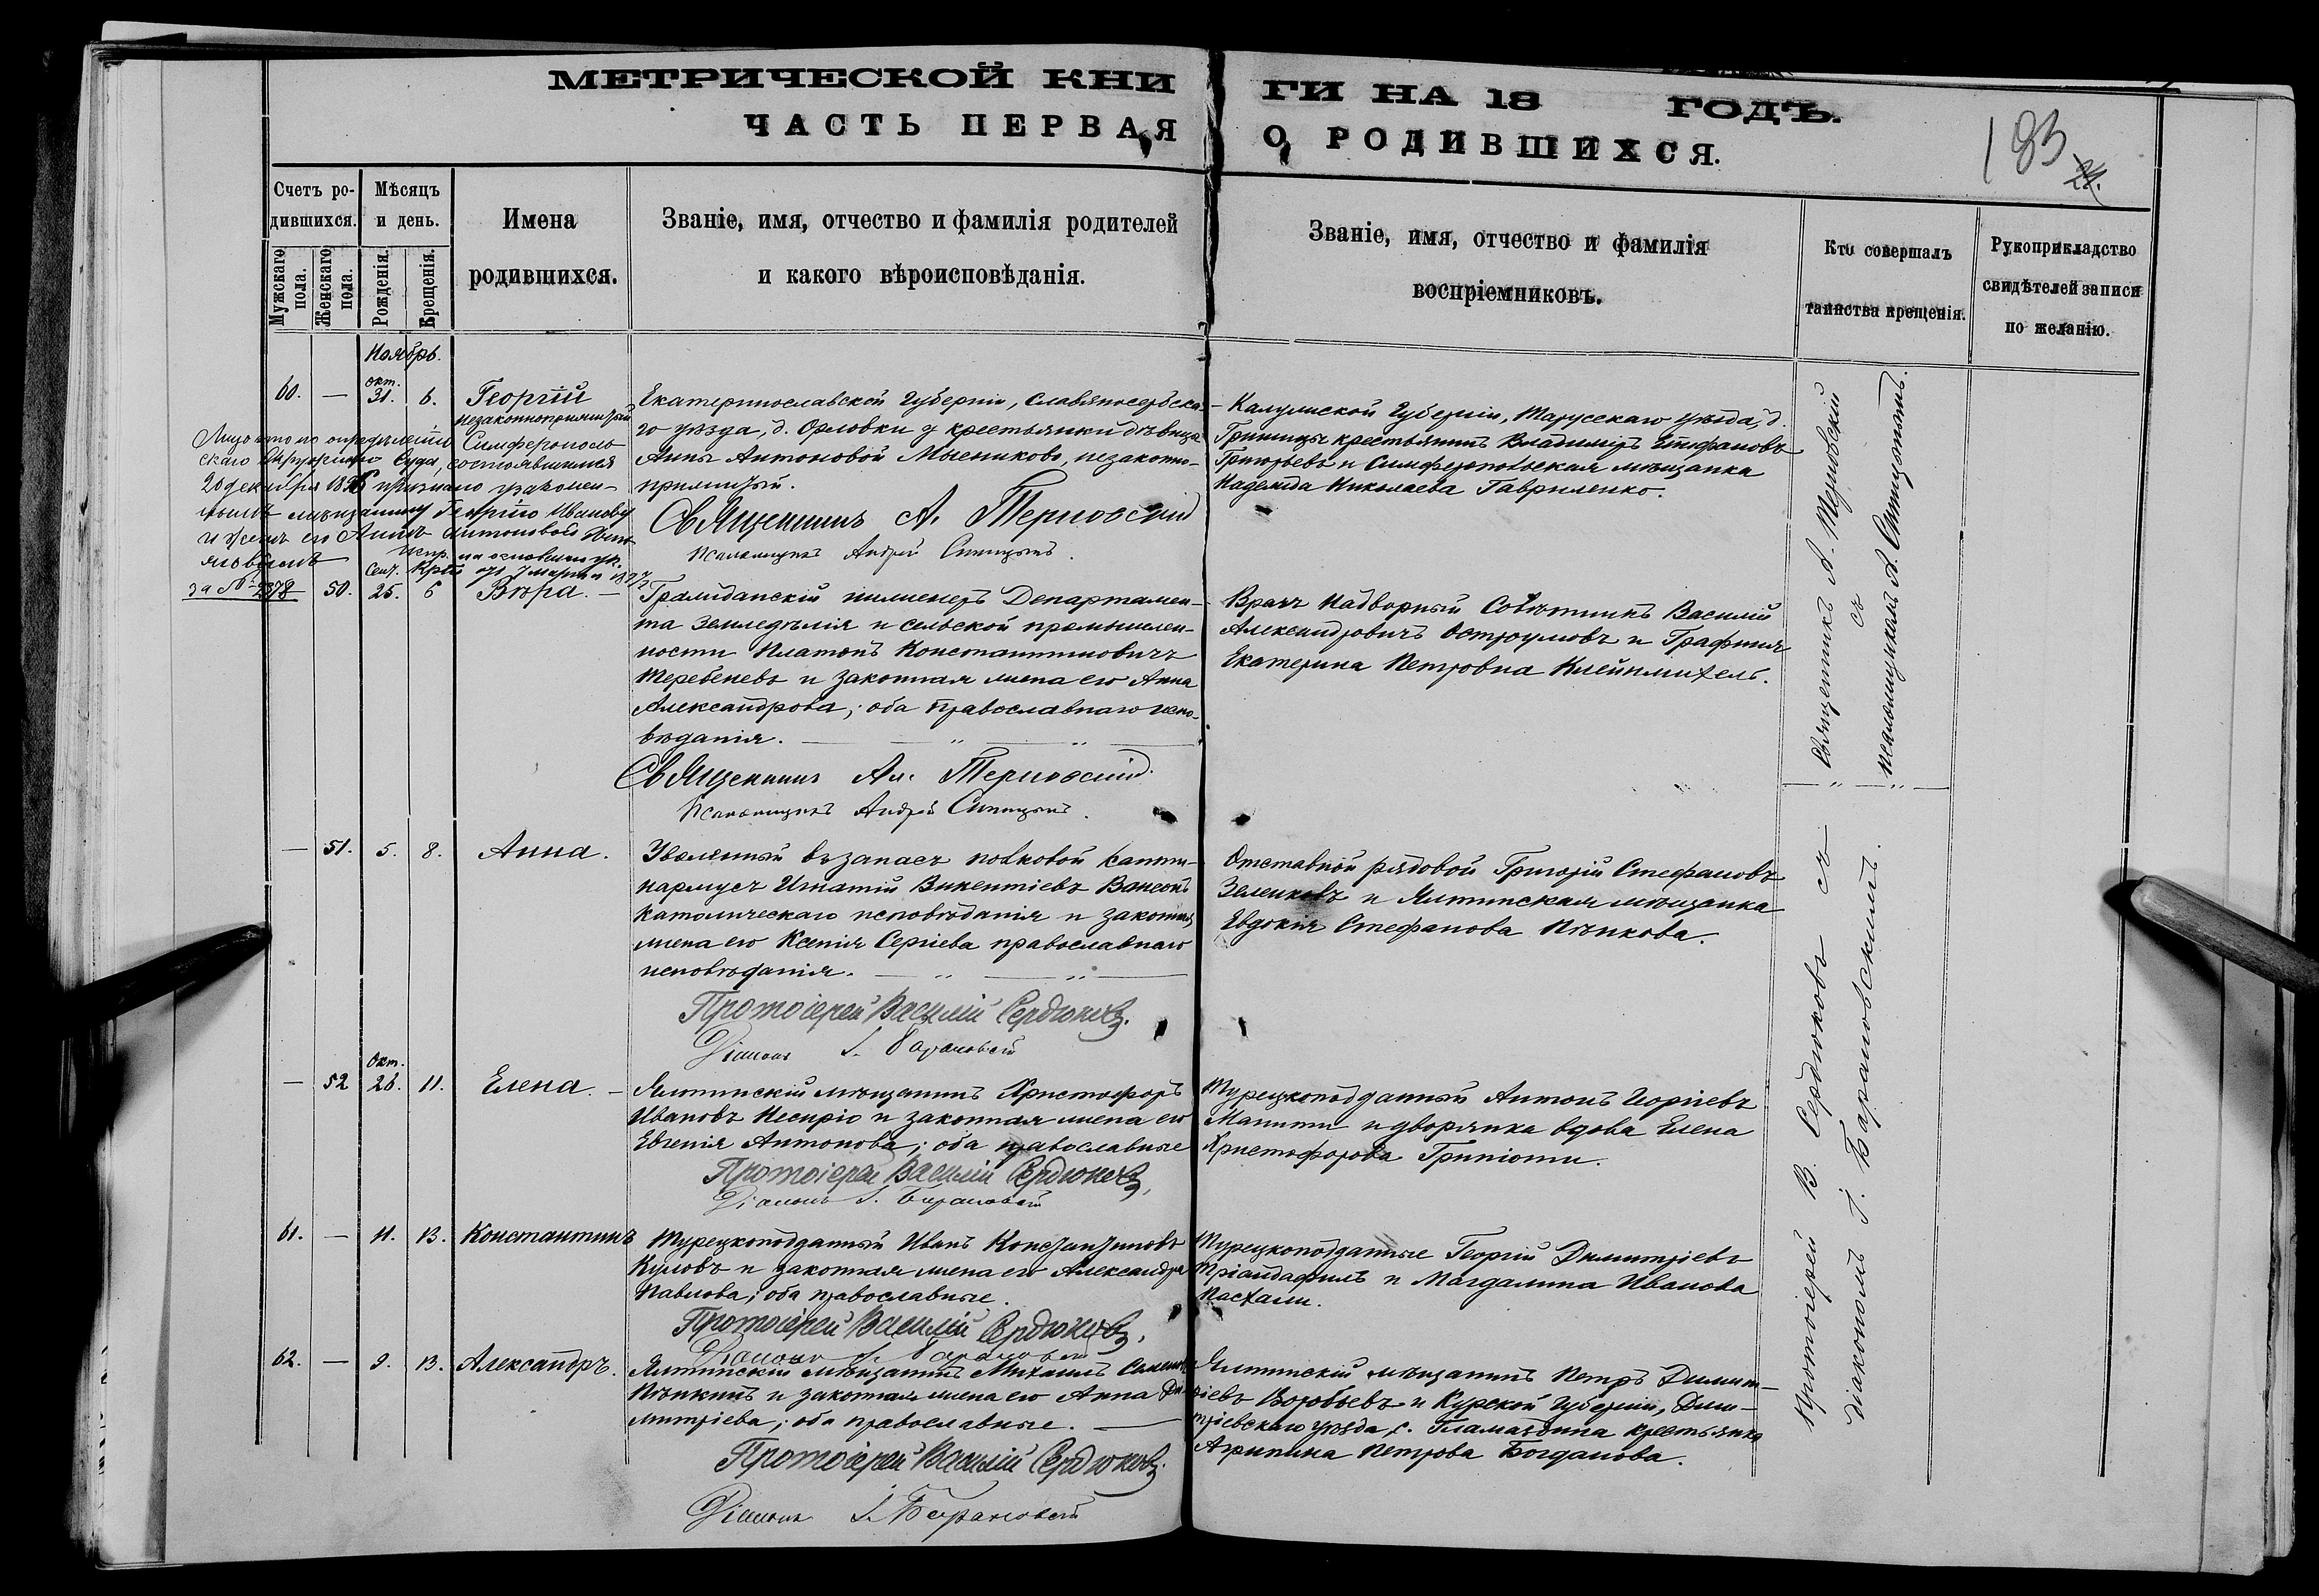 МЕТРИЧЕСКОЙ КНИ
ГИ НА 18 ГОДЪ.
ЧАСТЬ ПЕРВАЯ
О РОДИВШИХСЯ.
183
24.
Счетъ ро-
дившихся.
Мѣсяцъ
и день.
Мужскаго пола.
Женскаго пола.
Рожденія.
Крещенія.
Имена
родившихся.
Званіе, имя, отчество и фамилія родителей
и какого вѣроисповѣданія.
Званіе, имя, отчество и фамилія
воспріемниковъ.
Кто совершалъ
таинства крещенія.
Рукоприкладство
свидѣтелей записи
по желанію.
Ноябрь.
60. — окт. 31. 6. Георгій
незаконноприжитый
Лицо это по опредѣленію Симферополь
скаго Окружнаго Суда, состоявшимся
20 декабря 1896 признано
мѣщанину Георгію Иванову
и женѣ его Аннѣ Антоновой
за № 2378
Екатеринославской Губерніи, Славяносербска-
го уѣзда, д. Орловки у крестьянки дѣвица
Анны Антоновой Мысниково, незаконно-
прижитый.
Священникъ А. Терновскій
Псаломщикъ Андрей Синицынъ.
Калужской Губерніи, Тарусскаго уѣзда, д.
крестьянинъ Владиміръ Стефановъ
Григорьевъ и Симферопольская мѣщанка
Надежда Николаева Гавриленко.
50. Сент. 25. 6 Вѣра. —
Гражданскій инженеръ Департамен-
та Земледѣлія и сельской промышлен-
ности Платонъ Константиновичъ
Теребеневъ и законная жена его Анна
Александрова; оба православнаго испо-
вѣданія.
Священникъ Ал. Терновскій.
Псаломщикъ Андрей Синицынъ.
Врачъ Надворный Совѣтникъ Василій
Александровичъ Остроумовъ и Графиня
Екатерина Петровна Клейнмихель.
Священникъ А. Терновскій
съ
псаломщикомъ А. Синицынымъ.
— 51. 5. 8. Анна.
Уволенный въ запасъ полковой капти-
нармусъ Игнатій Викентіевъ Вансонъ
католическаго исповѣданія и законная
жена его Ксенія Сергіева православнаго
исповѣданія.
Протоіерей Василій Сердюковъ.
Діаконъ І. Барановскій
Отставной рядовой Григорій Стефановъ
Зеленковъ и Ялтинская мѣщанка
Евдокія Стефанова Пѣнкова.
— 52 Окт. 26. 11. Елена. —
Ялтинскій мѣщанинъ Христофоръ
Ивановъ Несиріо и законная жена его
Евгенія Антонова; оба православные
Протоіерей Василій Сердюковъ,
Діаконъ І. Барановскій
Турецкоподданный Антонъ Георгіевъ
Манити и дворянка вдова Елена
Христофорова Грипіоти.
61. — 11. 13. Константинъ
Турецкоподданный Иванъ Константиновъ
Куловъ и законная жена его Александра
Павлова; оба православные.
Протоіерей Василій Сердюковъ,
Діаконъ І. Барановскій
Турецкоподданные Георгій Димитріевъ
Тріандафилъ и Магдалина Иванова
Пасхали.
62. — 9. 13. Александръ.
Ялтинскій мѣщанинъ Михаилъ Семеновъ
Пѣнкинъ и законная жена его Анна Ди-
митріева; оба православные. —
Протоіерей Василій Сердюковъ
Діаконъ І. Барановскій
Ялтинскій мѣщанинъ Петръ Димит-
ріевъ Воробьевъ и Курской Губерніи, Дми-
тріевскаго уѣзда, с. Гламаздина крестьянка
Агрипина Петрова Богданова.
Протоіерей В. Сердюковъ съ
діакономъ І. Барановскимъ.